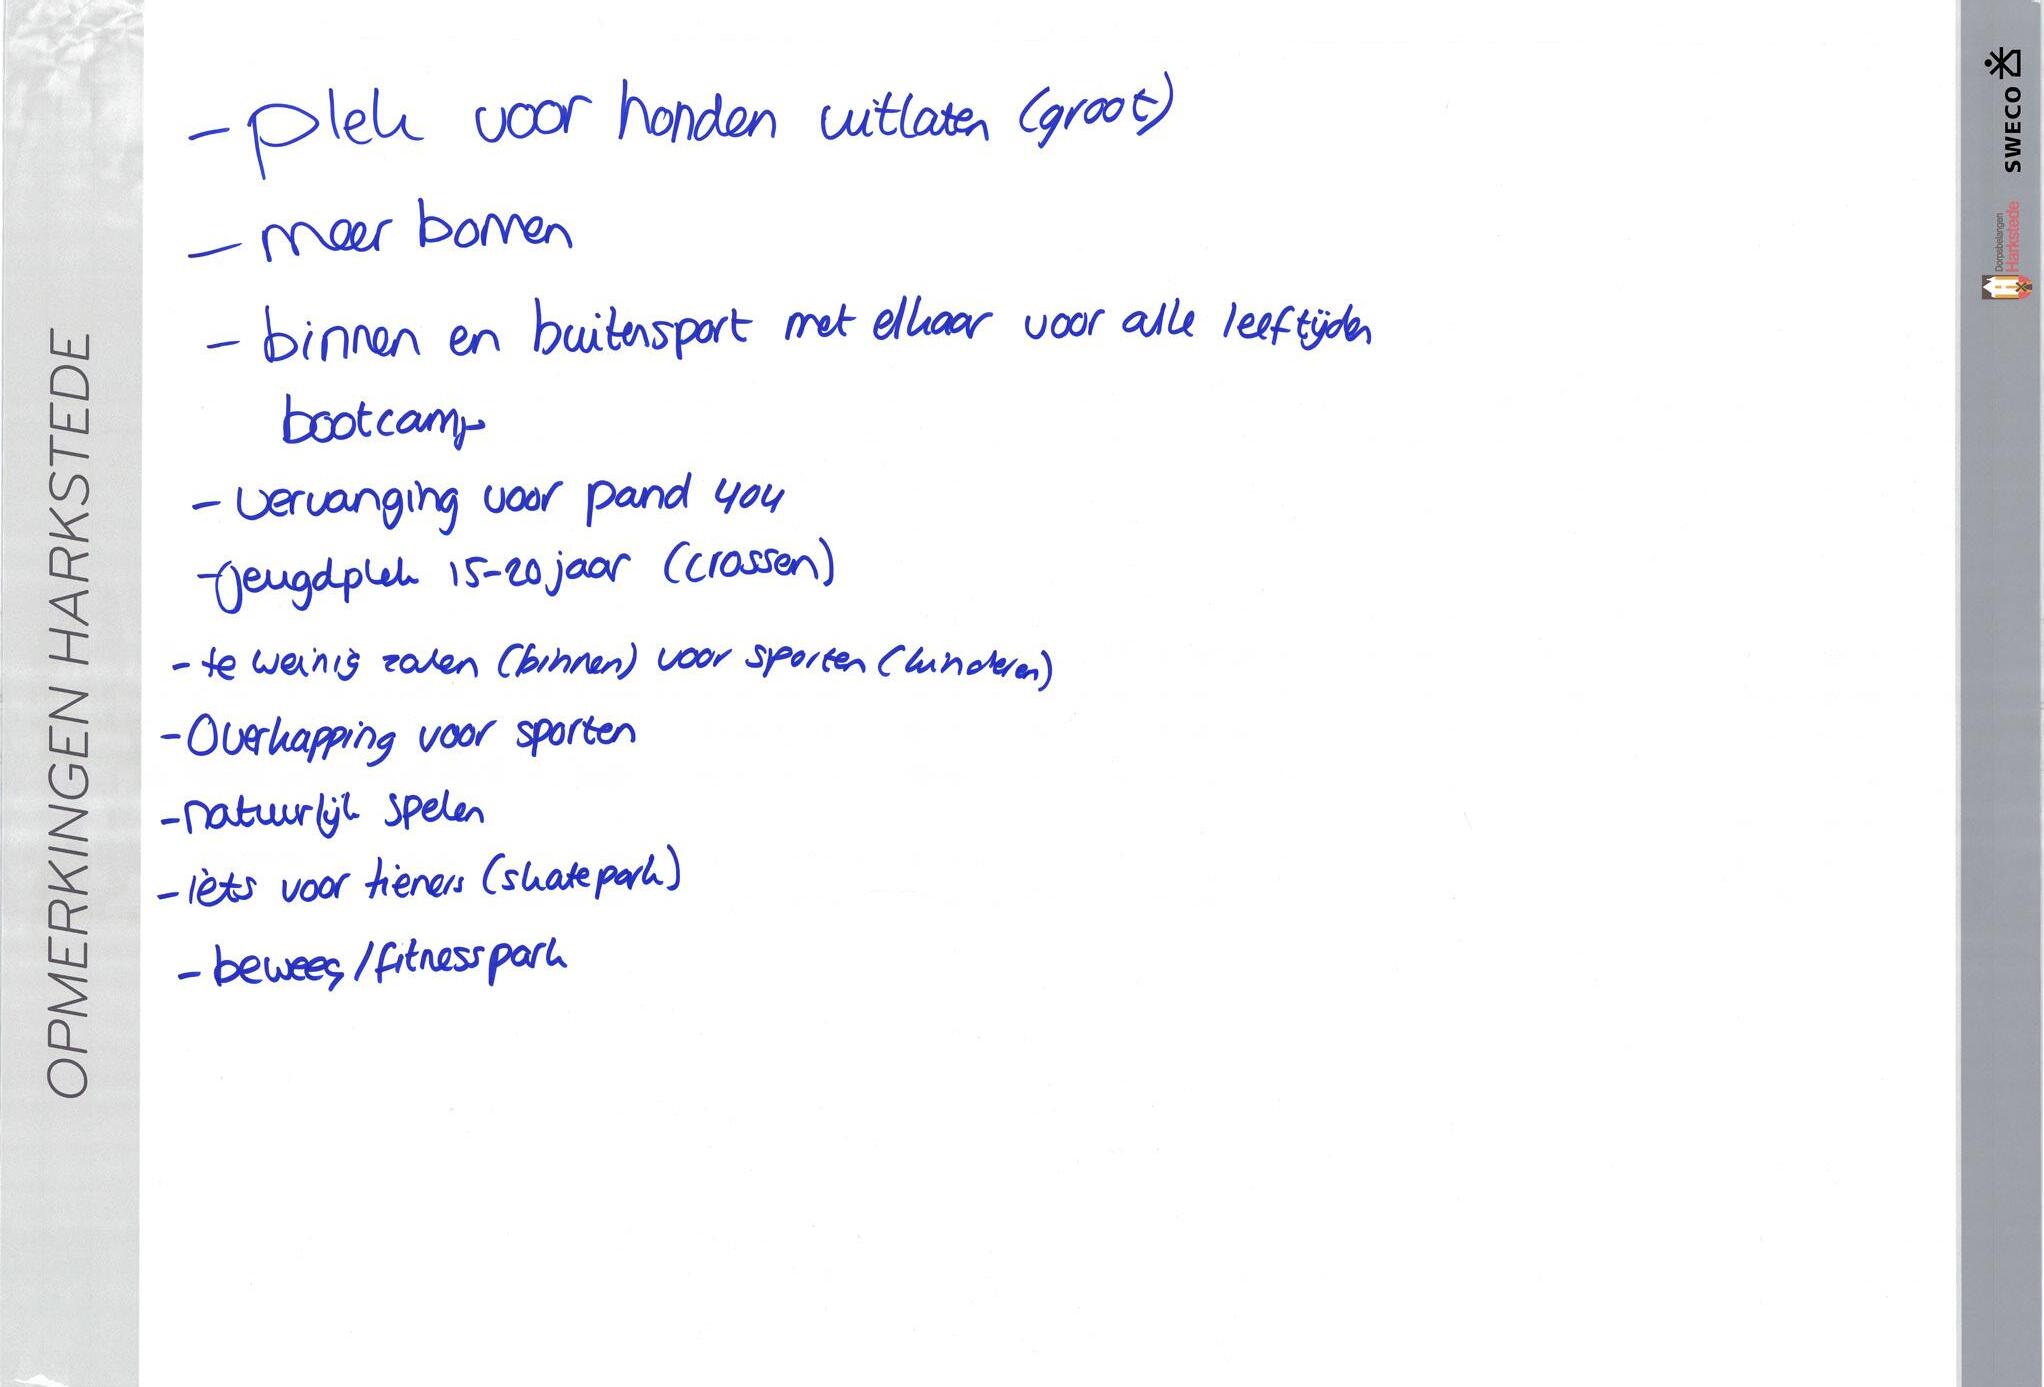 OPMERKINGEN HARKSTEDE
- plek voor honden uitlaten (groot)
- meer bomen
- binnen en buitensport met elkaar voor alle leeftijden
bootcamp
- vervanging voor pand 404
- jeugdplek 15-20 jaar (crossen)
- te weinig zalen (binnen) voor sporten (kinderen)
- Overkapping voor sporten
- natuurlijk spelen
- iets voor tieners (skatepark)
- beweeg/fitnesspark
SWECO
Dorpsbelangen
Harkstede